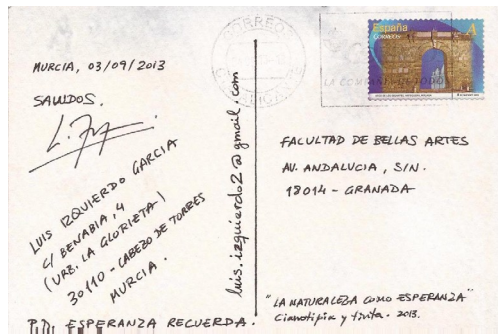 MURCIA, 03/09/2013
SALUDOS.
LUIS IZQUIERDO GARCIA
C/ BENABIA, 4
(URB. LA GLORIETA)
30110 - CABEZO DE TORRES
MURCIA.
P.D. ESPERANZA RECUERDA.
luis.izquierdo2@gmail.com
CORREO
España
CORREOS
A
FACULTAD DE BELLAS ARTES
AV. ANDALUCIA, S/N.
18014 - GRANADA
"LA NATURALEZA COMO ESPERANZA"
Cianotipia y tinta. 2013.